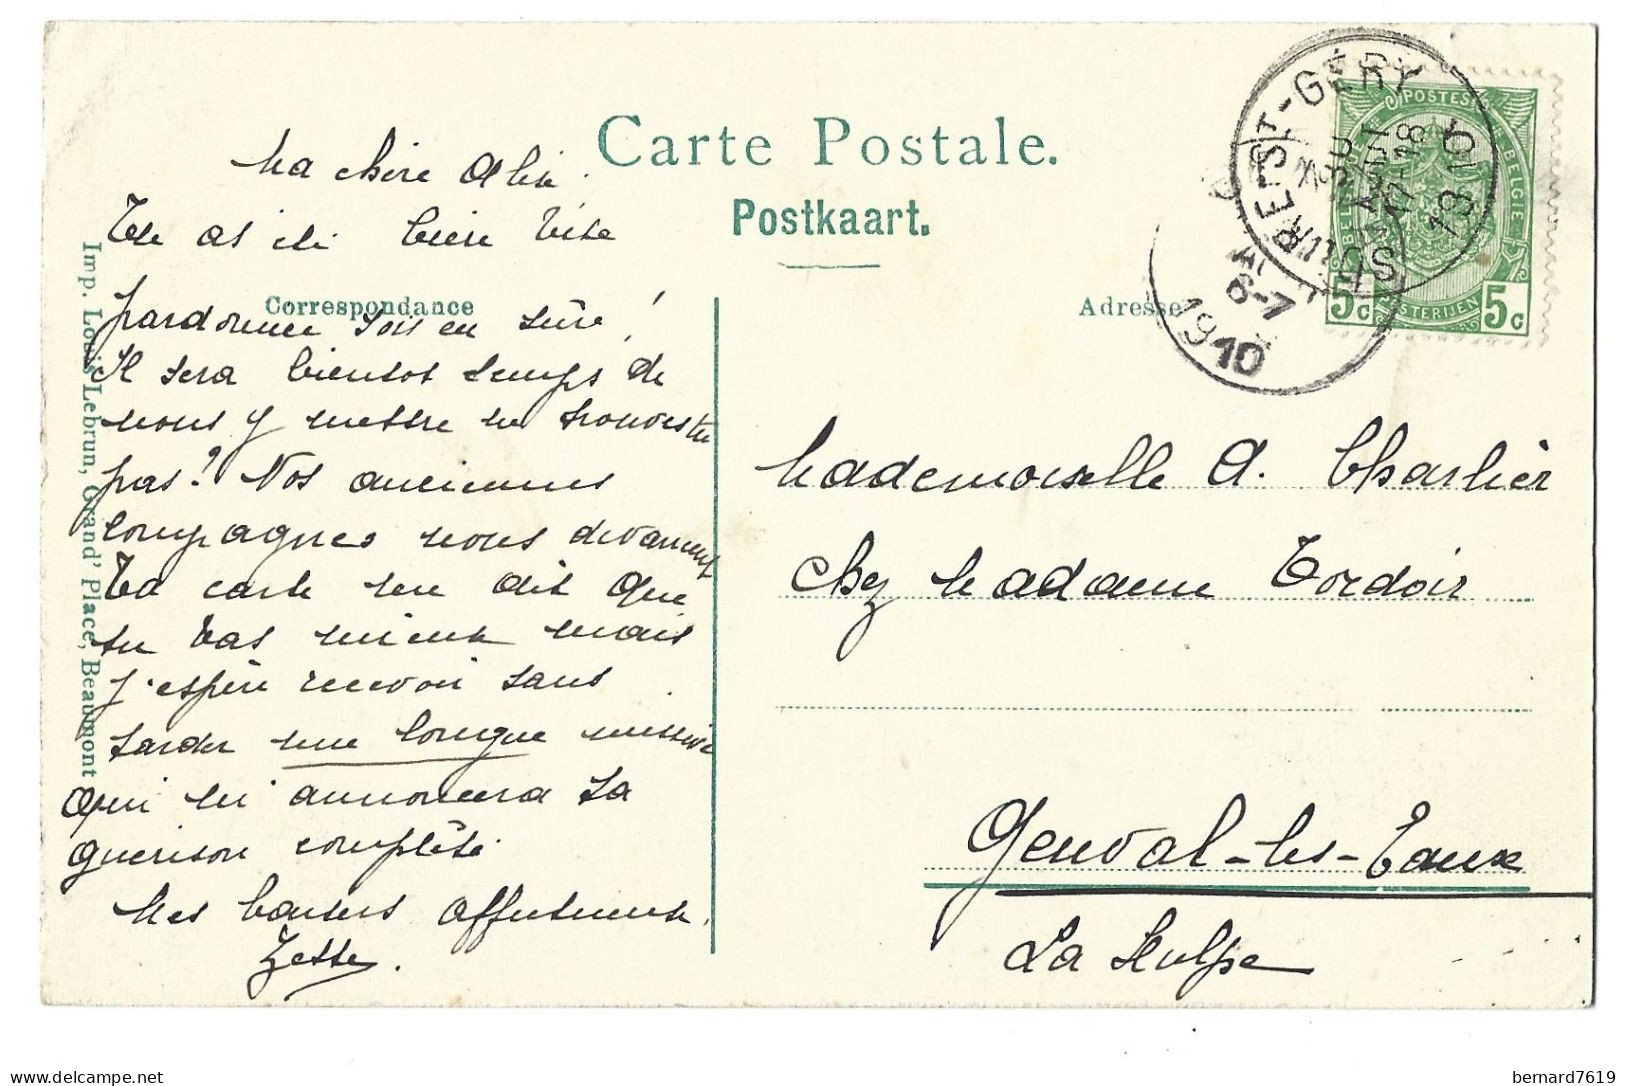 Carte Postale.
Postkaart.
Correspondance
Adresse
Imp. Louis Lebrun, Grand' Place, Beaumont
Ma chère Alice
Tu as été bien vite
pardonnée sois en sûre!
Il sera bientot temps de
nous y mettre ne trouves tu
pas? Nos anciennes
compagnes nous devancent
Ta carte me dit que
tu vas mieux mais
j'espère recevoir sans
tarder une longue missive
qui m'annoncera ta
guérison complète
Mes baisers affectueux.
Zette.
Mademoiselle A. Charlier
chez Madame Tordoir
Genval-les-Eaux
La Hulpe
RENLIES ST-GÉRY
17-18
1910
6-7
1910
POSTES
BELGIE
POSTERIJEN
5c
5c
bernard7619